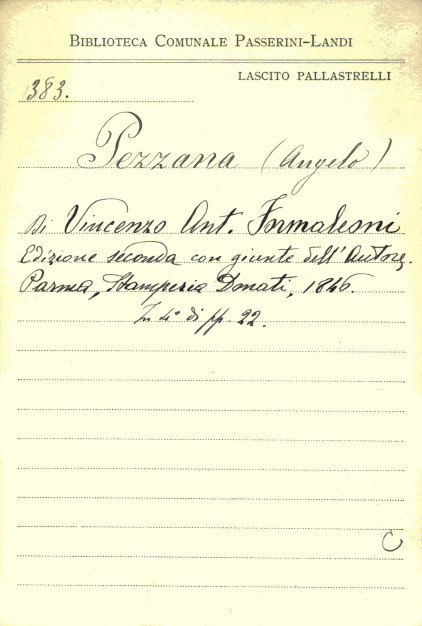 BIBLIOTECA COMUNALE PASSERINI-LANDI
LASCITO PALLASTRELLI
383.
Pezzana (Angelo)
Di Vincenzo Ant. Formaleoni
Edizione seconda con giunte dell'Autore.
Parma, Stamperia Donati, 1846.
In 4° di pp. 22.
C